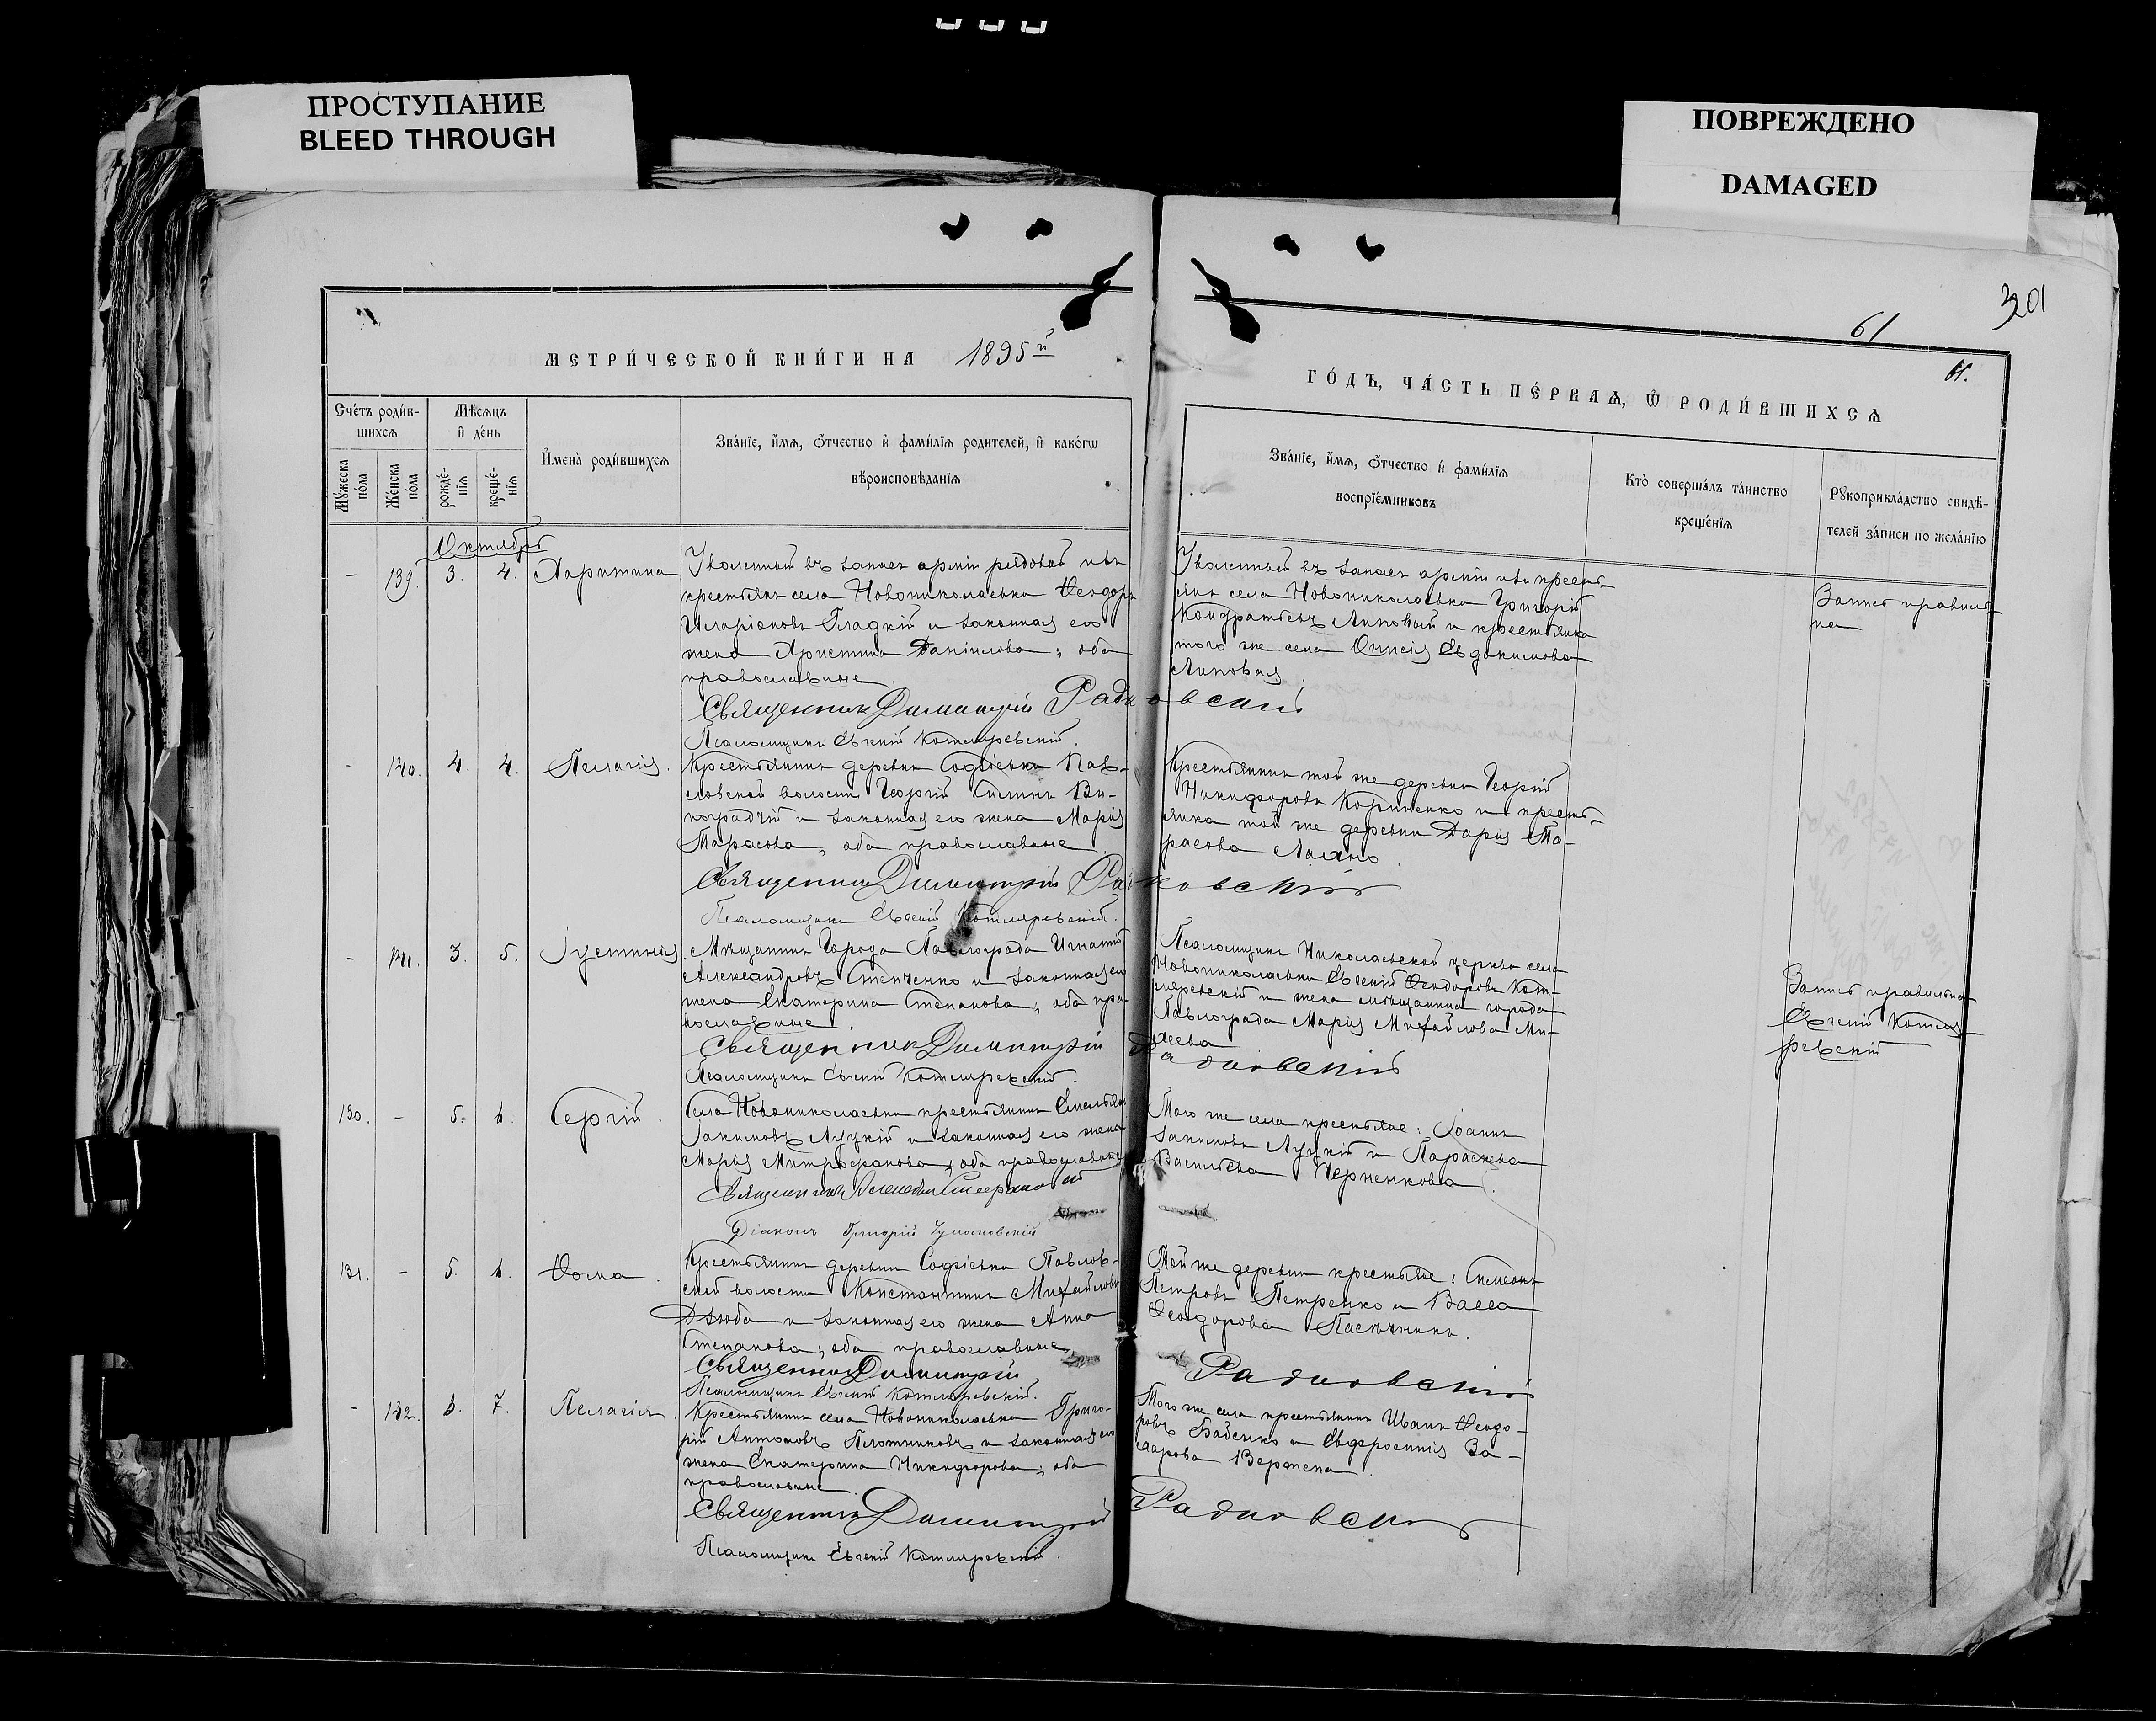 ПРОСТУПАНИЕ
BLEED THROUGH
ПОВРЕЖДЕНО
DAMAGED
301
61
61.
МЕТРИ́ЧЕСКОЙ КНИ́ГИ НА 1895й
ГО́ДЪ, ЧА́СТЬ ПЕ́РВАѦ, Ѡ҆ РОДИ́ВШИХСѦ
Сче́тъ роди́в-
шихсѧ
Мѣ́сѧцъ
и҆ де́нь
Мꙋ́жеска по́ла
Же́нска по́ла
рожде́-
нїѧ
креще́-
нїѧ
И҆мена̀ роди́вшихсѧ
Зва́нїе, и҆́мѧ, ѻ҆́тчество и҆ фами́лїѧ родителей, и҆ како́гѡ
вѣроисповѣ́данїѧ
Зва́нїе, и҆́мѧ, ѻ҆́тчество и҆ фами́лїѧ
воспрїе́мниковъ
Кто̀ соверша́лъ та́инство
креще́нїѧ
Рꙋкоприкла́дство свидѣ́-
телей за́писи по жела́нїю
Октябрь
- 139. 3. 4. Харитина
Уволенный въ запас арміи рядовой изъ
крестьянъ села Новониколаевки Ѳеодоръ
Иларіоновъ Гладкій и законная его
жена Христина Даніилова, оба
православные.
Уволенный въ запасъ арміи изъ кресть-
янъ села Новониколаевки Григорій
Кондратьевъ Липовый и крестьянка
того же села Анисія Евдокимова
Липовая.
Запись правиль-
на
Священник Димитрій Радковскій
Псаломщикъ Евгеній Котляревскій.
- 140. 4. 4. Пелагія.
Крестьянинъ деревни Софіевки Пав-
ловской волости Георгій
Ви-
ноградчій и законная его жена Марія
Тарасова, оба православные.
Крестьянинъ той же деревни Георгій
Никифоровъ Корниенко и кресть-
янка той же деревни Дарія Та-
расова
Священник Димитрій Радковскій
Псаломщикъ Евгеній Котляревскій.
- 141. 3. 5. Іустинія.
Мѣщанинъ Города Павлограда Игнатій
Александровъ Степченко и законная его
жена Екатерина Степанова, оба пра-
вославные.
Псаломщикъ Николаевской церкви села
Новониколаевки Евгеній Ѳеодоровъ Кот-
ляревскій и жена мѣщанина города
Павлограда Марія Михайлова Ми-
Запись правильна
Евгеній Котля-
ревскій
Священник Димитрій Радковскій
Псаломщикъ Евгеній Котляревскій.
130. - 5. 6. Сергій.
Села Новониколаевки крестьянинъ Емельянъ
Іакимовъ Луцкій и законная его жена
Марія Митрофанова, оба православные
Того же села крестьяне: Іоаннъ
Іакимовъ Луцкій и Параскева
Васильева Черненкова.
Священникъ
Діаконъ Григорій
131. - 5. 6. Ѳома.
Крестьянинъ деревни Софіевки Павлов-
ской волости Константинъ Михайловъ
Дзюба и законная его жена Анна
Степанова, оба православные.
Той же деревни крестьяне: Симеонъ
Петровъ Петренко и Васса
Ѳеодорова Пасечникъ.
Священник Димитрій Радковскій
Псаломщикъ Евгеній Котляревскій.
- 142. 6. 7. Пелагія.
Крестьянинъ села Новониколаевки Григо-
рій Антоновъ Плотниковъ и законная его
жена Екатерина Никифорова, оба
православные.
Того же села крестьянинъ Иванъ Ѳеодо-
ровъ Бабенко и Евфросинія За-
харова
Священник Димитрій Радковскій
Псаломщикъ Евгеній Котляревскій.